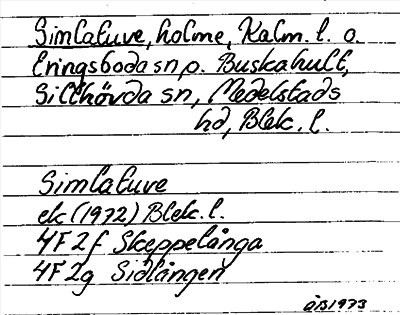 Simlatuve, holme, Kalm. l. o.
Eringsboda sn, o. Buskahult,
Sillhövda sn, Medelstads
hd, Blek. l.
Simlatuve
ek (1972) Blek. l.
4F 2f Skeppelånga
4F 2g Sidlången
ÖB 1973